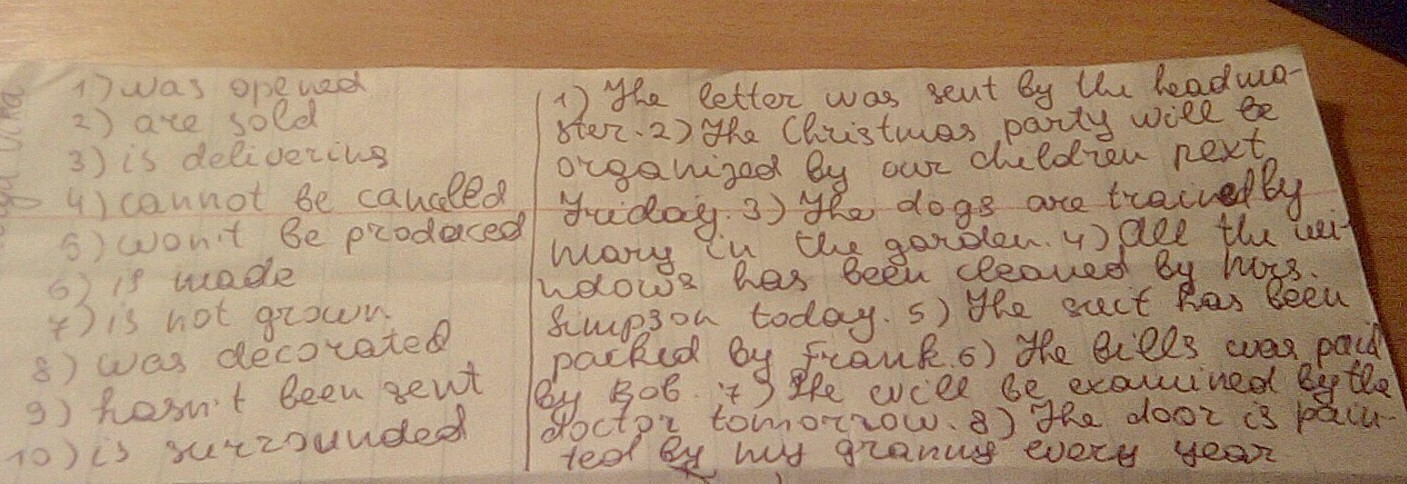 1) was opened
2) are sold
3) is delivering
4) cannot be canceled
5) won't be produced
6) is made
7) is not grown
8) was decorated
9) hasn't been sent
10) is surrounded
1) The letter was sent by the headma-
ster. 2) The Christmas party will be
organized by our children next
Friday. 3) The dogs are trained by
mary in the garden. 4) All the wi-
ndows has been cleaned by mrs.
Simpson today. 5) The suit has been
packed by Frank. 6) The bills was paid
by Bob. 7) She will be examined by the
doctor tomorrow. 8) The door is pain-
ted by my granny every year